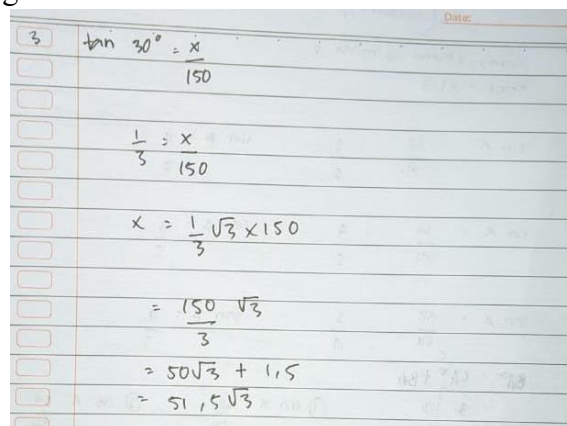 Date:
3 tan 30° = x/150
1/3 = x/150
x = 1/3 √3 x 150
= 150/3 √3
= 50√3 + 1,5
= 51,5√3